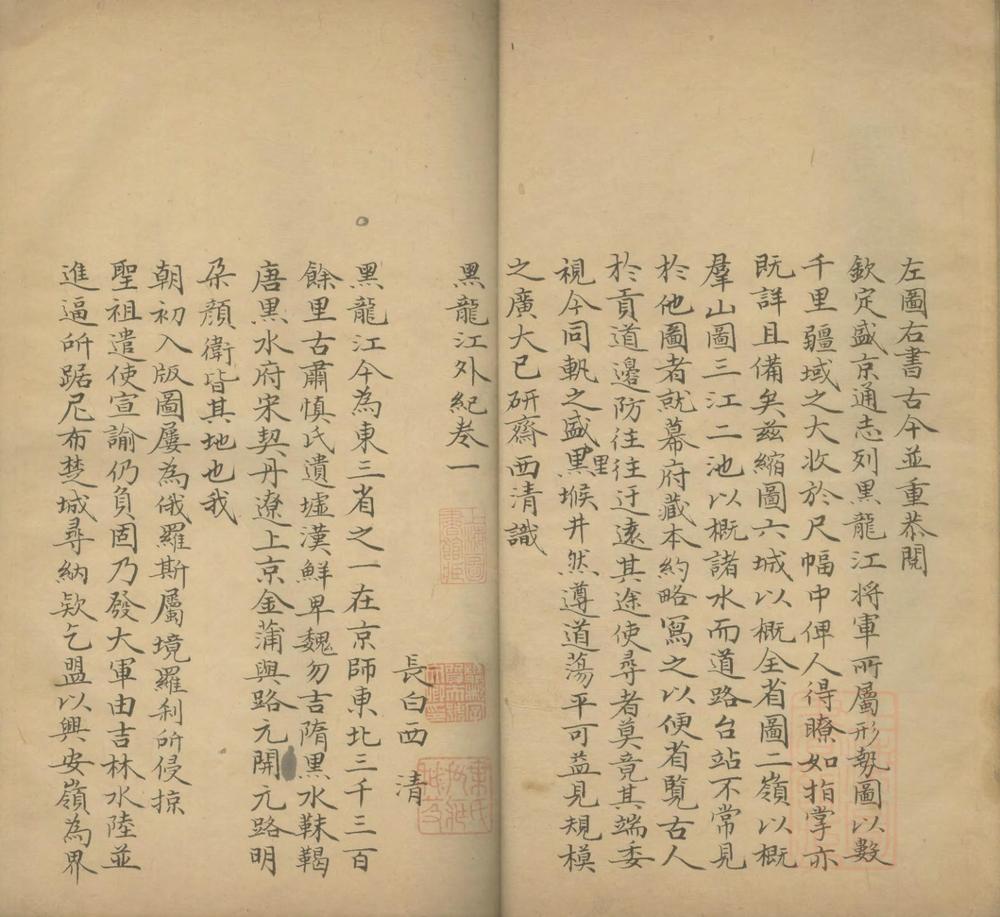 左圖右書古今並重恭閱
欽定盛京通志列黑龍江將軍所屬形勢圖以數
千里疆域之大收於尺幅中俾人得瞭如指掌亦
既詳且備矣茲縮圖六城以概全省圖二嶺以概
羣山圖三江二池以概諸水而道路台站不常見
於他圖者就幕府藏本約略寫之以便省覽古人
於貢道邊防往往迂遠其途使尋者莫竟其端委
視今同軌之盛黑堠井然遵道蕩平可益見規模
里
之廣大已研齋西清識
黑龍江外紀卷一
長白西 清
黑龍江今為東三省之一在京師東北三千三百
餘里古肅慎氏遺墟漢鮮卑魏勿吉隋黑水靺鞨
唐黑水府宋契丹遼上京金蒲與路元開元路明
朶顏衛皆其地也我
朝初入版圖屢為俄羅斯屬境羅刹所侵掠
聖祖遣使宣諭仍負固乃發大軍由吉林水陸並
進逼所踞尼布楚城尋納欵乞盟以興安嶺為界